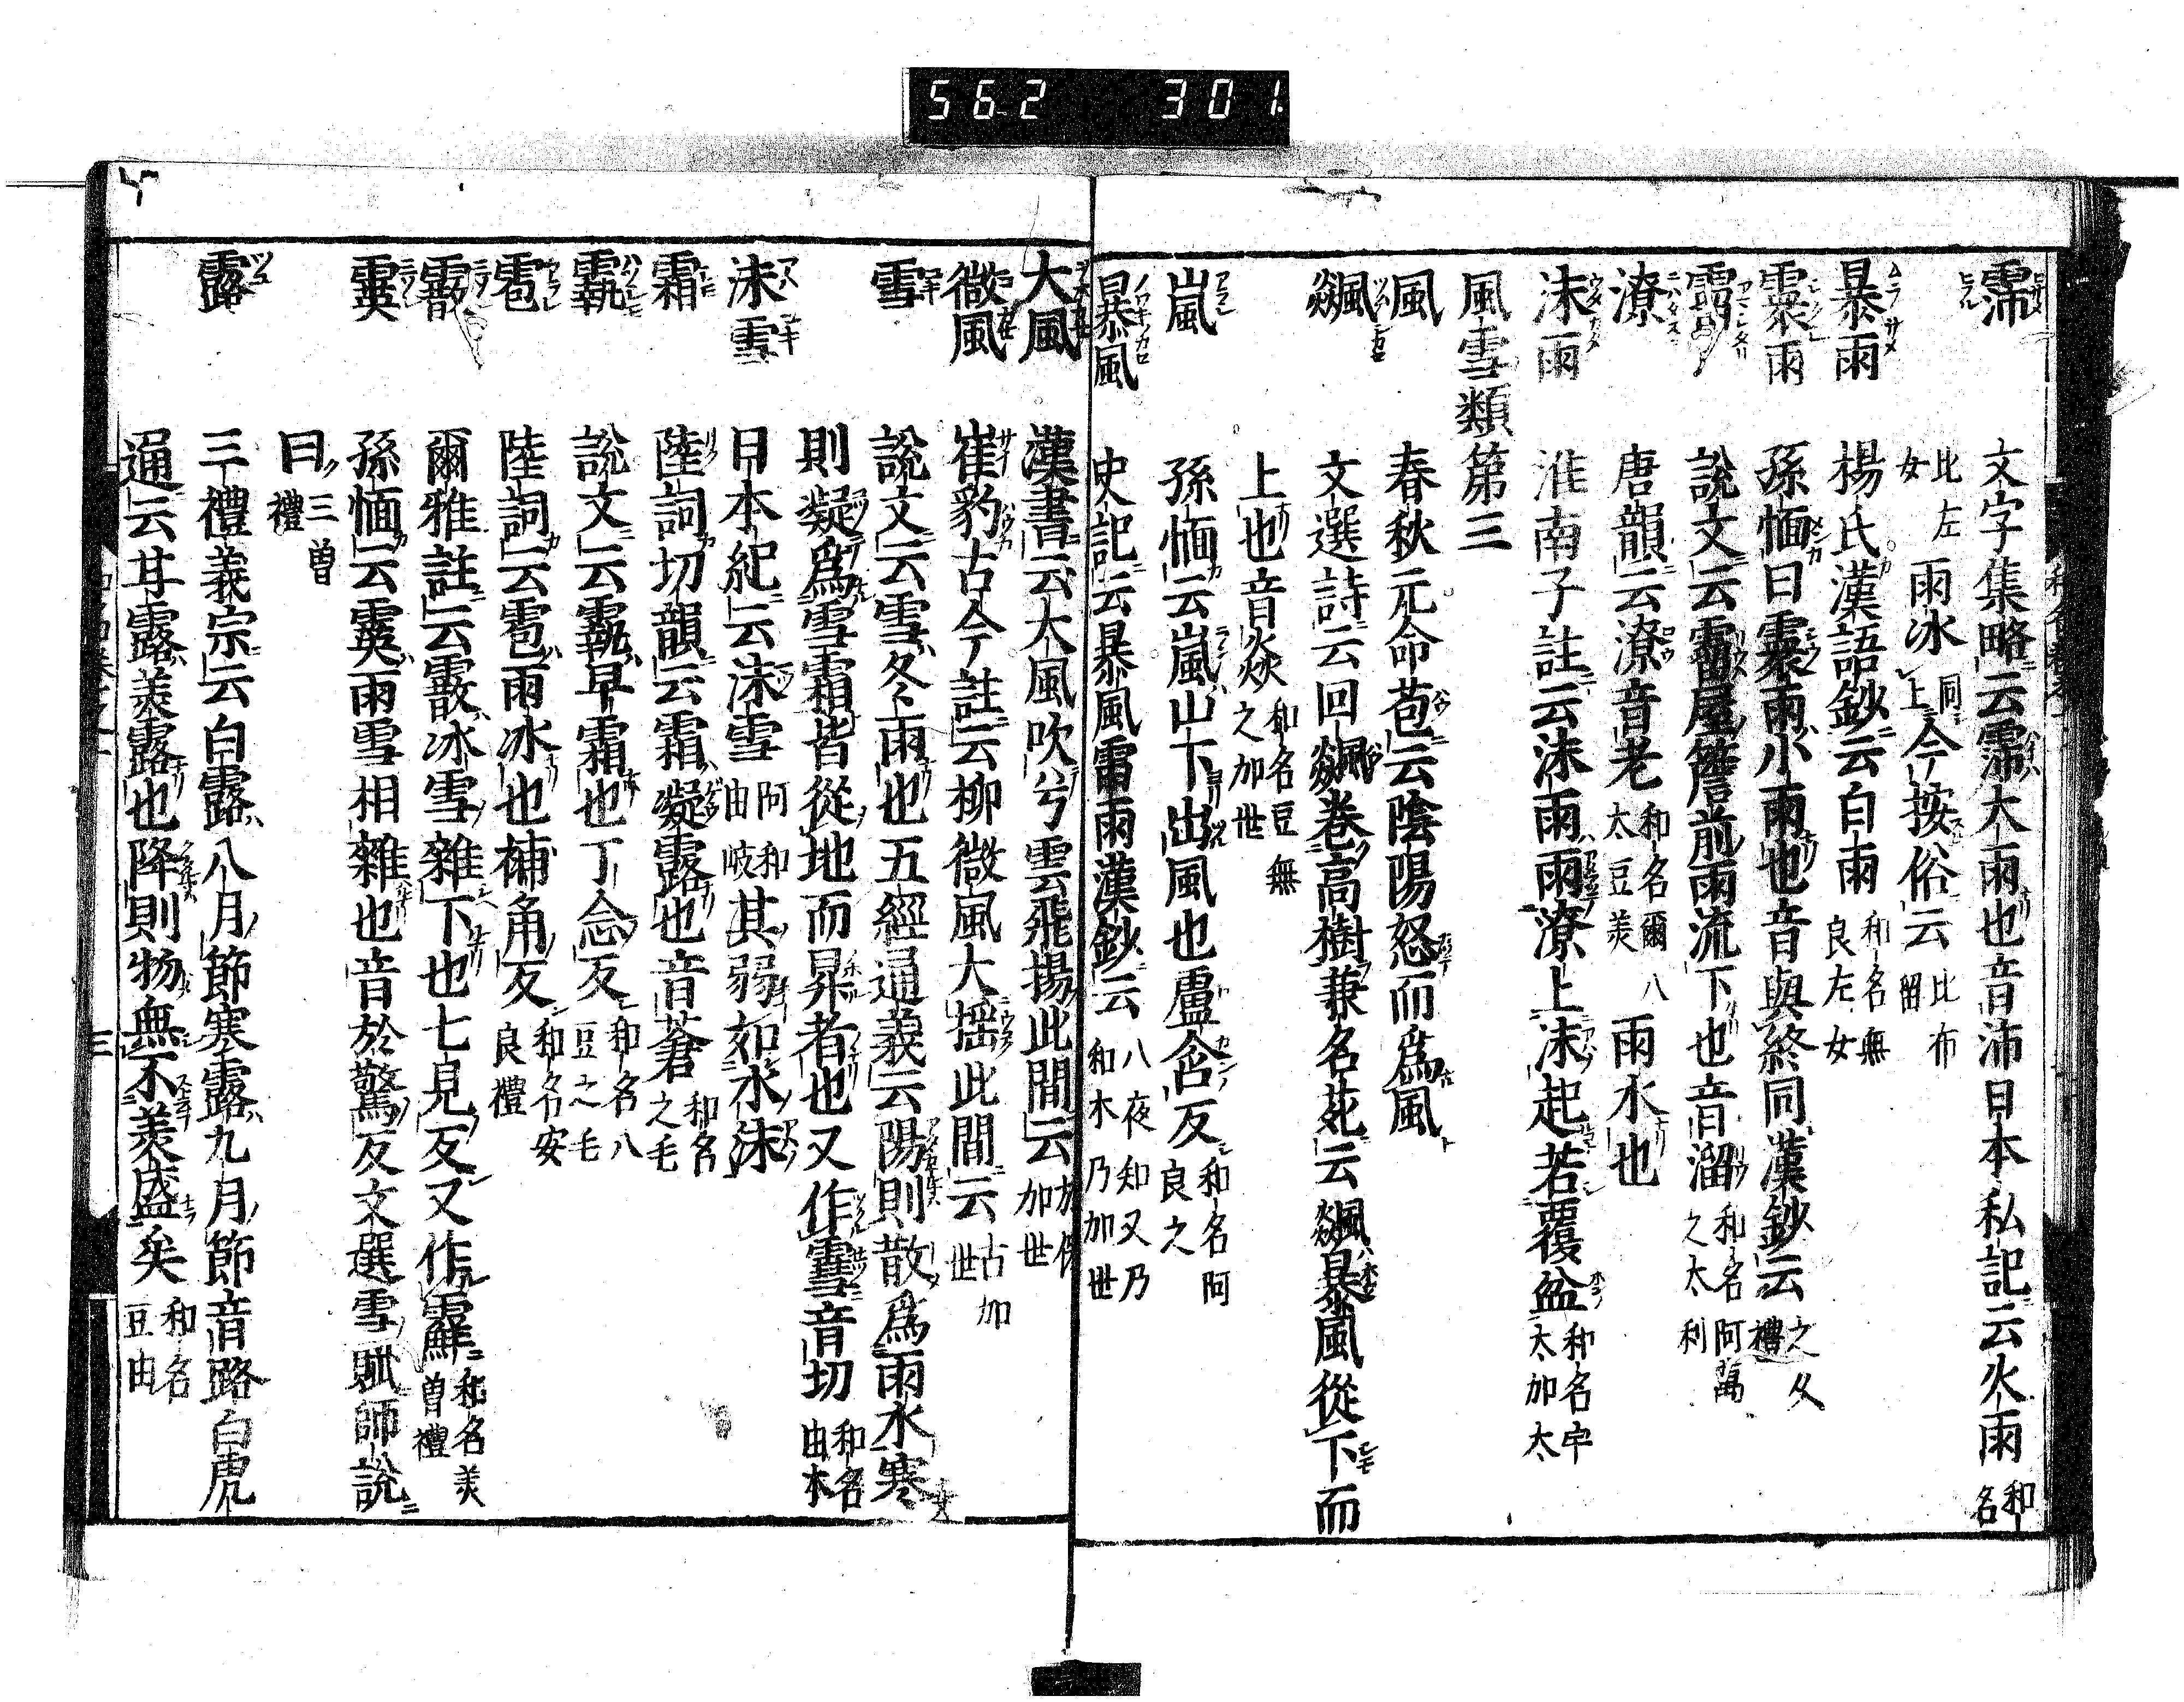 562 301
霈 文字集略云霈大雨也音沛日本私記云火雨 和名
比左女 雨氷 同上 今按俗云 比布留
暴雨 楊氏漢語鈔云白雨 和名無良左女
霥雨 孫愐曰霥雨小雨也音與終同漢鈔云 之久禮
霤 說文云霤屋簷前雨流下也音溜 和名阿萬之太利
潦 唐韻云潦音老 和名爾八太豆美 雨水也
沬雨 淮南子註云沬雨雨潦上沬起若覆盆 和名宇太加太
風雪類第三
風 春秋元命苞云陰陽怒而爲風
飈 文選詩云回飈卷高樹兼名苑云飈暴風從下而
上也音焱 和名豆無之加世
嵐 孫愐云嵐山下出風也盧含反 和名阿良之
暴風 史記云暴風雷雨漢鈔云 八夜知又乃和木乃加世
大風 漢書云大風吹兮雲飛揚此間云 於保加世
微風 崔豹古今註云柳微風大揺此間云 古加世
雪 說文云雪冬雨也五經通義云陽則散爲雨水寒
則凝爲雪霜皆從地而昇者也又作䨮音切 和名由木
沬雪 日本紀云沬雪 阿和由岐 其弱如水沬
霜 陸詞切韻云霜凝露也音蒼 和名之毛
霜 說文云早霜也丁念反 和名八豆之毛
雹 陸詞云雹雨冰也補角反 和名安良禮
霰 爾雅註云霰冰雪雜下也七見反又作䨘 和名美曽禮
霙 孫愐云霙雨雪相雜也音於驚反文選雪賦師說
曰 三曽禮
露 三禮義宗云白露八月節寒露九月節音路白虎
通云甘露美露也降則物無不美盛矣 和名豆由
三